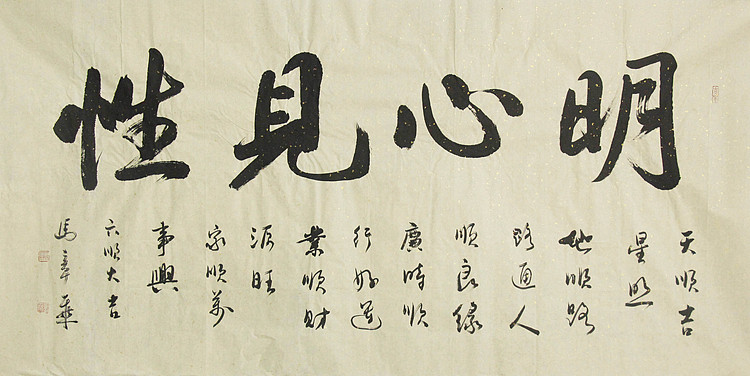 明心見性
天順吉
星照
地順路
路通人
順良緣
廣時順
行好運
業順財
源旺
家順萬
事興
六順大吉
馬